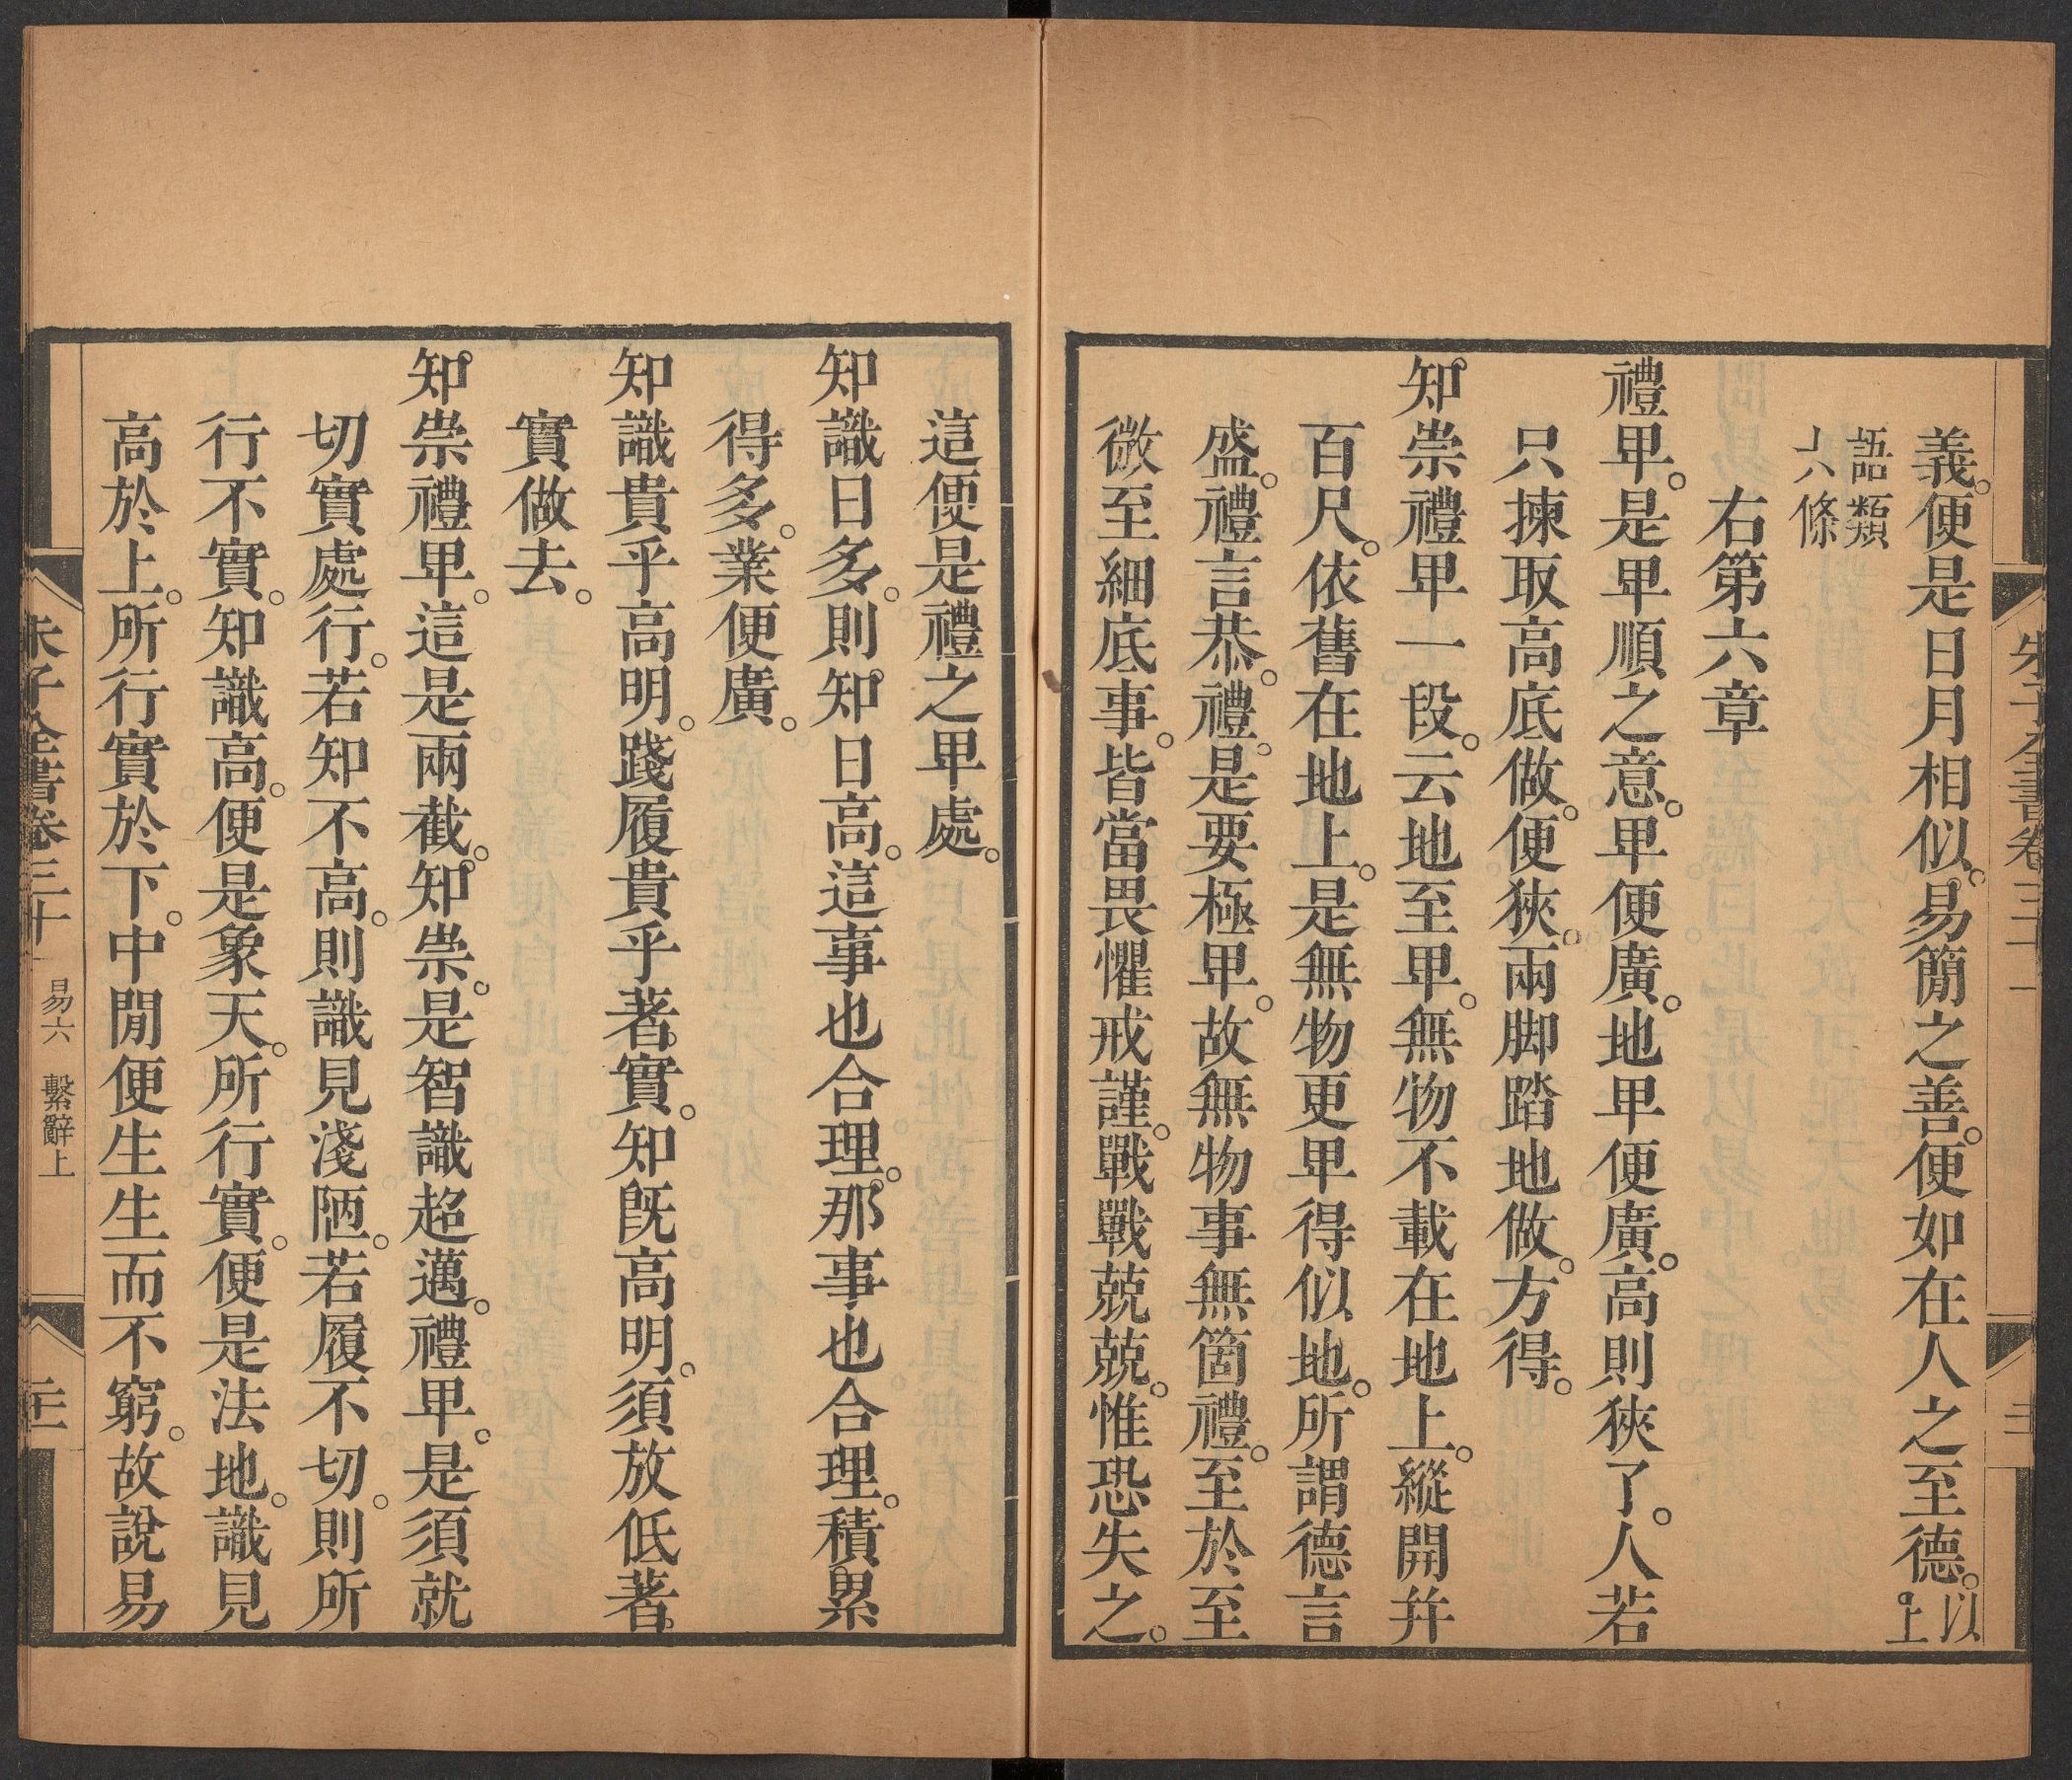 義便是日月相似易簡之善便如在人之至德以上
語類
六條
右第六章
禮卑是卑順之意卑便廣地卑便廣高則狹了人若
只揀取高底做便狹兩脚踏地做方得
知崇禮卑一段云地至卑無物不載在地上縱開井
百尺依舊在地上是無物更卑得似地所謂德言
盛禮言恭禮是要極卑故無物事無箇禮至於至
微至細底事皆當畏懼戒謹戰戰兢兢惟恐失之
這便是禮之卑處
知識日多則知日高這事也合理那事也合理積累
得多業便廣
知識貴乎高明踐履貴乎著實知既高明須放低著
實做去
知崇禮卑這是兩截知崇是智識超邁禮卑是須就
切實處行若知不高則識見淺陋若履不切則所
行不實知識高便是象天所行實便是法地識見
高於上所行實於下中閒便生生而不窮故說易
朱子全書卷三十
易六 繫辭上